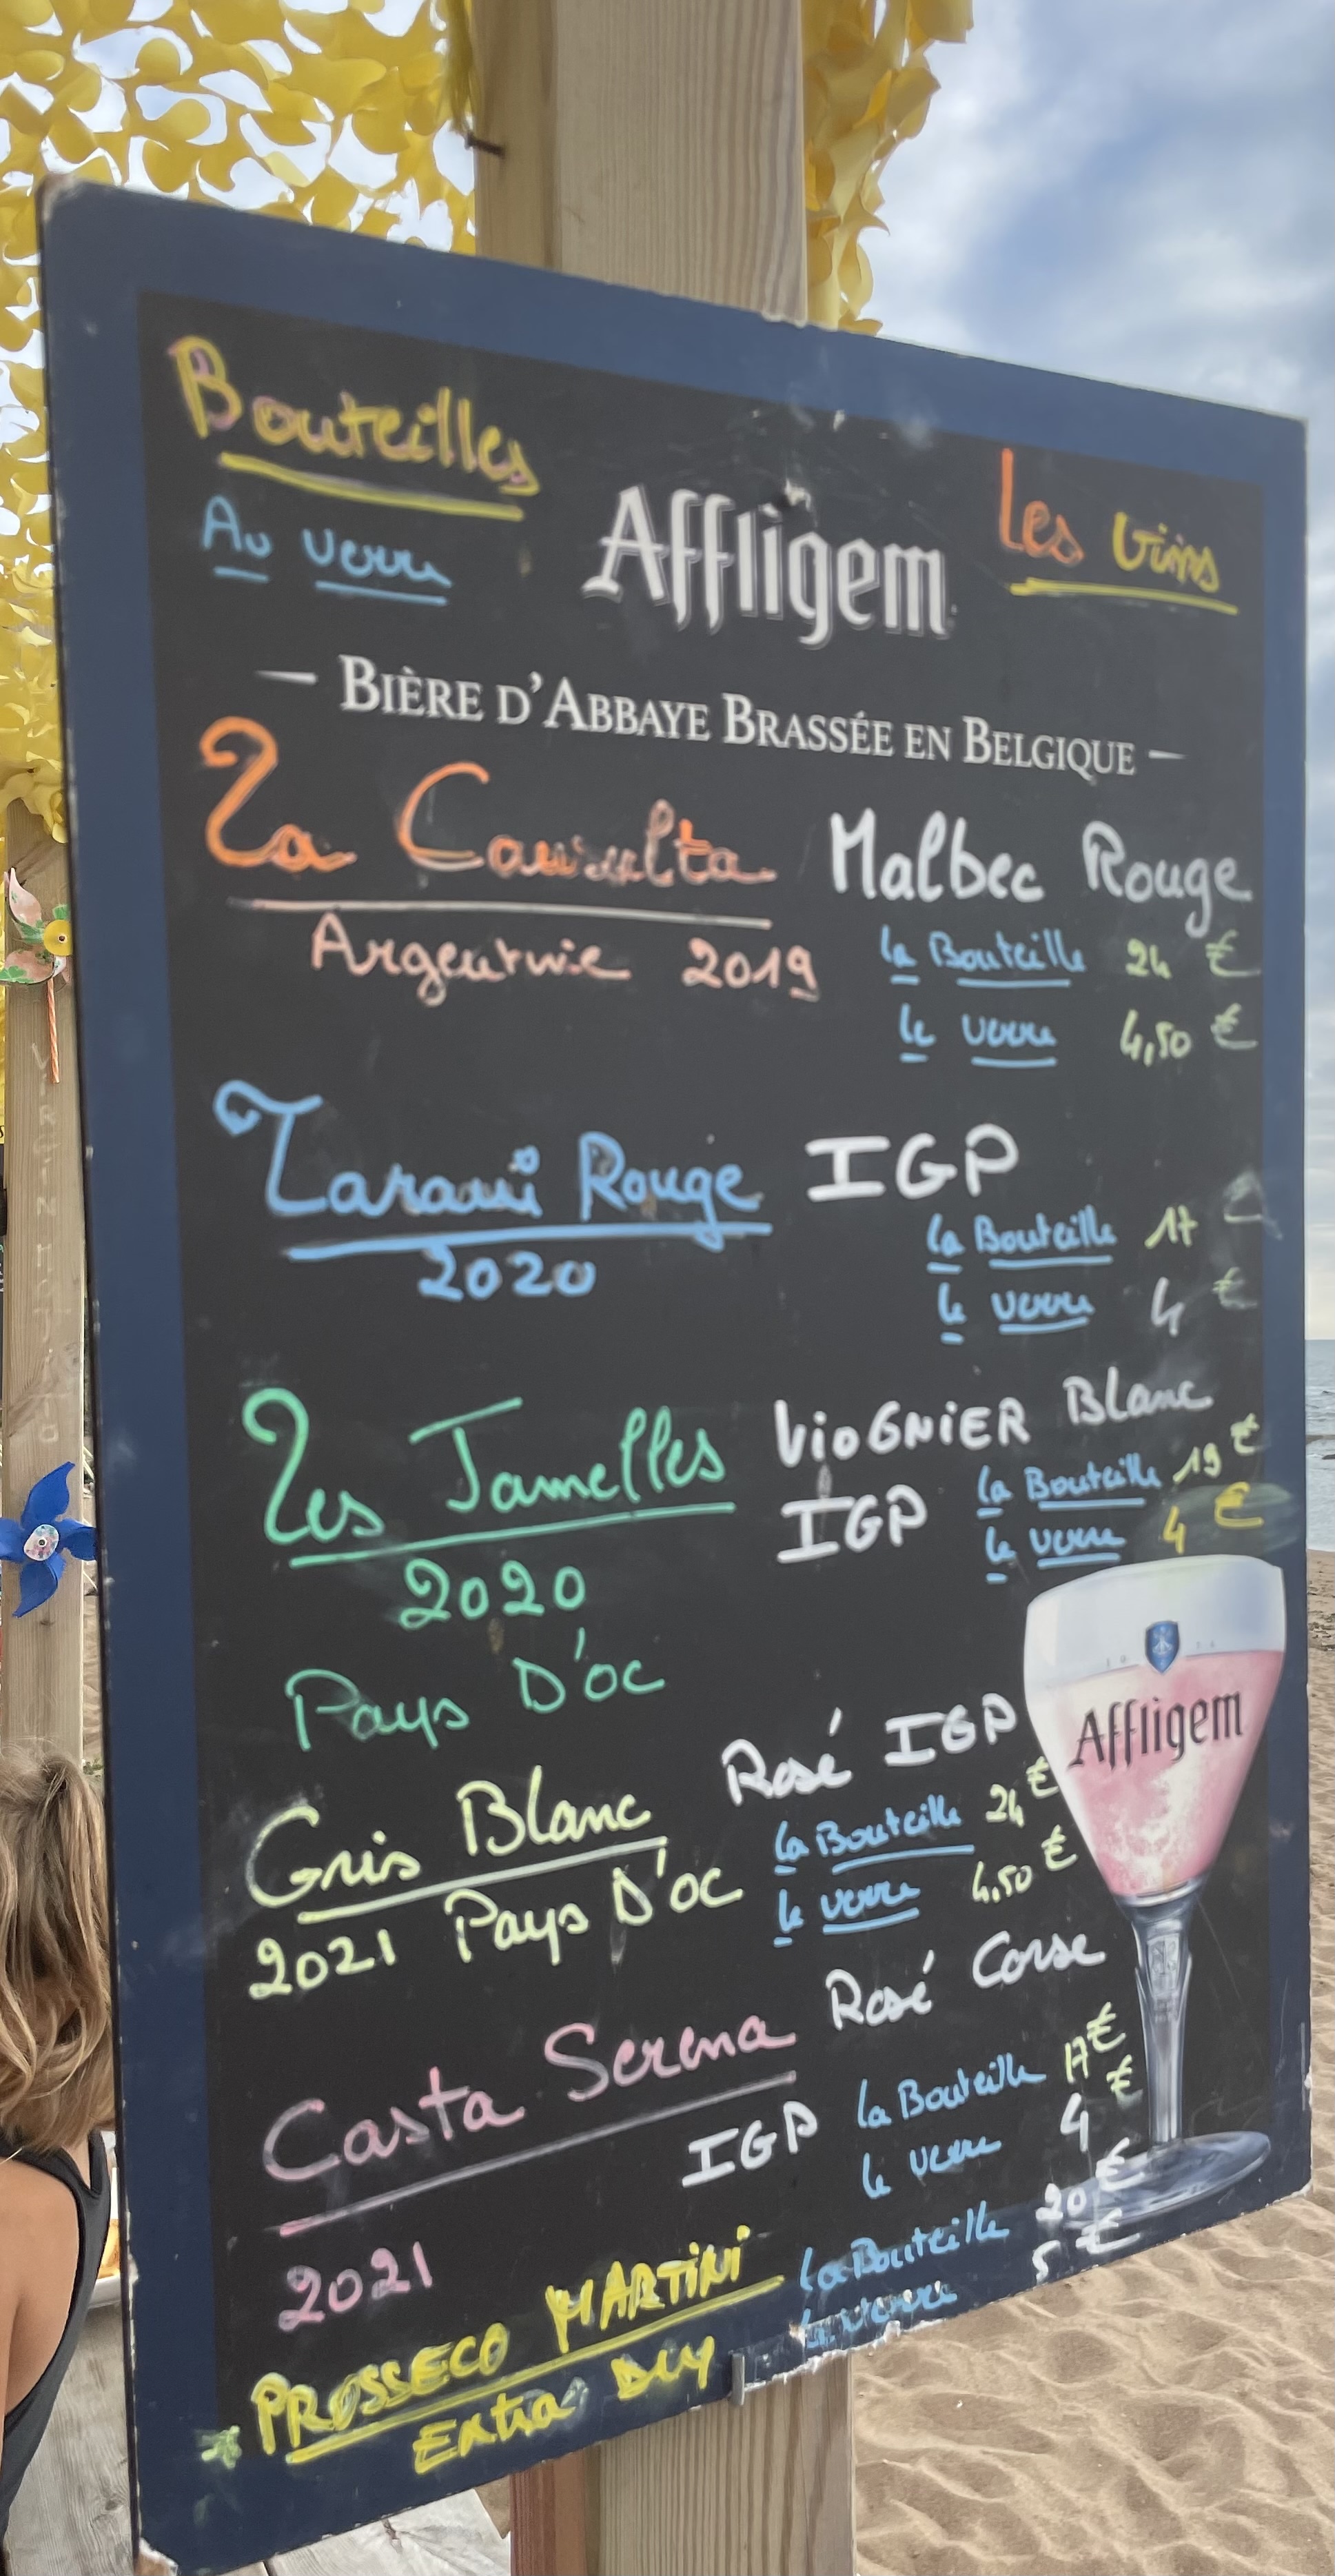 Bouteilles
Au verre
Affligem
Les Vins
— BIÈRE D'ABBAYE BRASSÉE EN BELGIQUE —
La Malbec Rouge
Argentine 2019
la Bouteille 24 €
le verre 4,50 €
Tarani Rouge IGP
2020
la Bouteille 17
le verre 4 €
Les Jamelles VioGNiER Blanc
IGP
la Bouteille 19 €
le verre 4 €
2020
Pays D'OC
Gris Blanc Rosé IGP
2021 Pays D'OC
la Bouteille 24 €
le verre 4,50 €
Casta Serena Rosé Corse
IGP
la Bouteille 17 €
le verre 4 €
2021
PROSSECO MARTiNi
Extra Dry
la Bouteille 20 €
le verre 5 €
Affligem